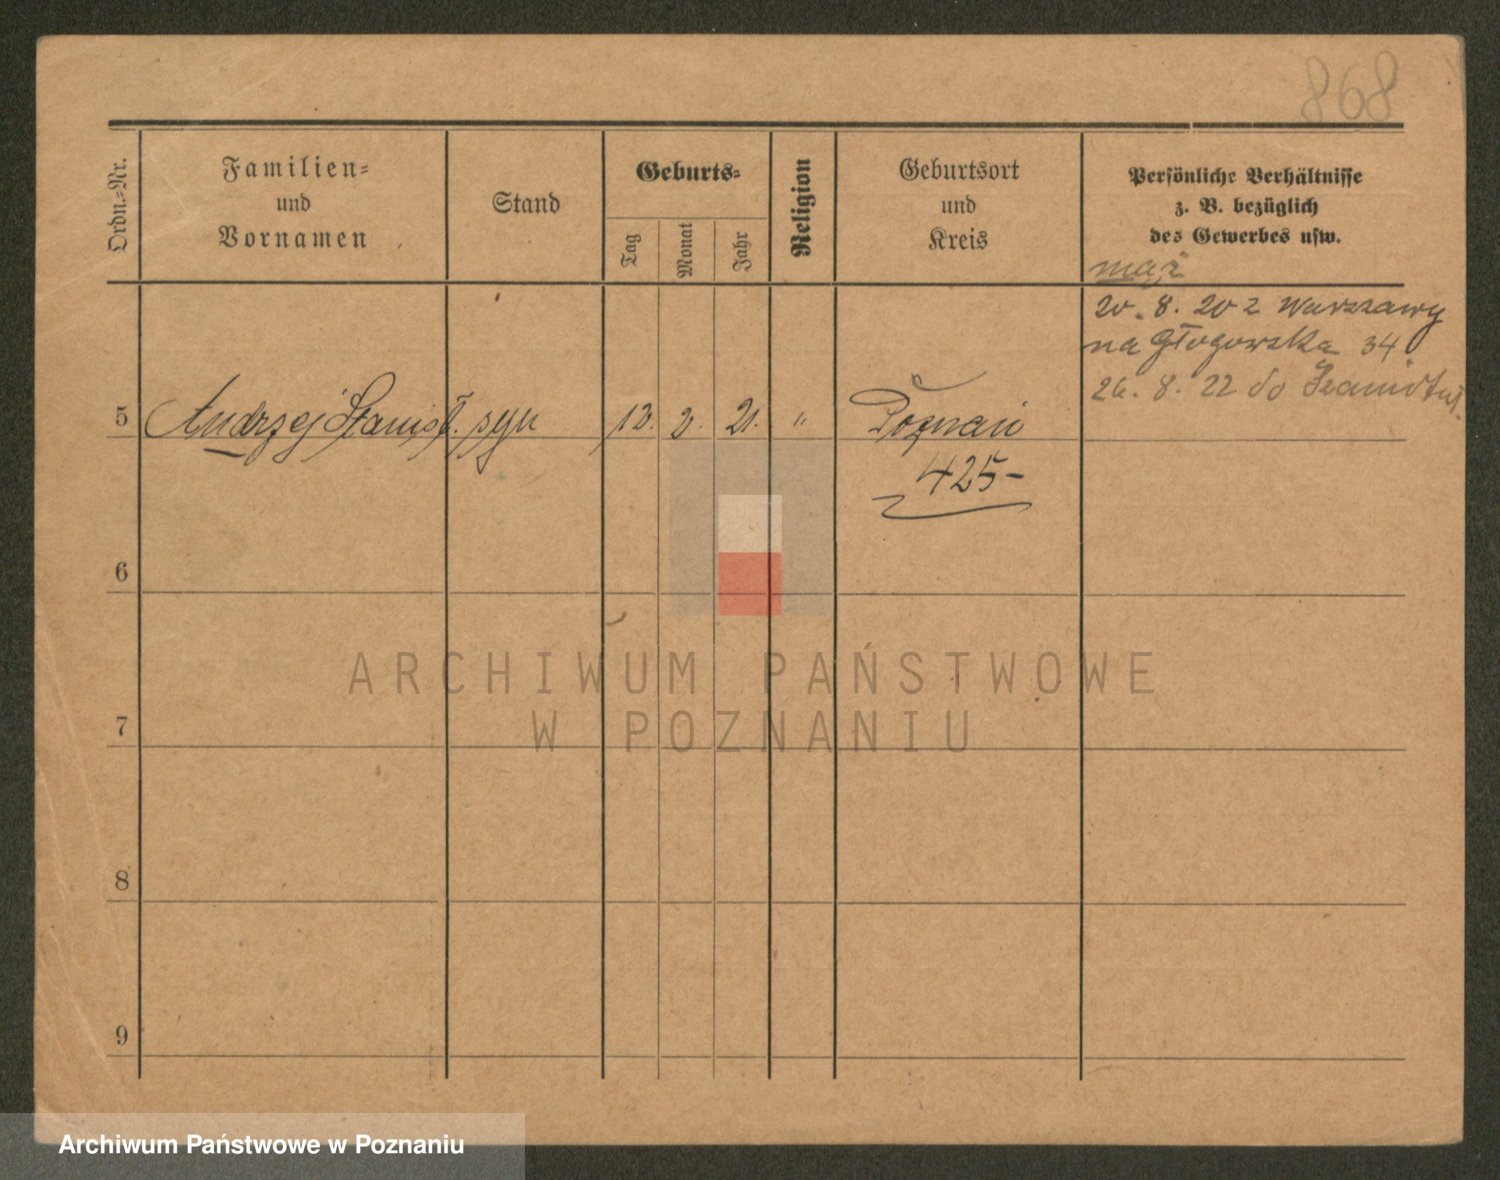 868
Ordn.-Nr.
Familien-
und
Vornamen
Stand
Geburts-
Tag
Monat
Jahr
Religion
Geburtsort
und
Kreis
Persönliche Verhältnisse
z. B. bezüglich
des Gewerbes usw.
mąż
20. 8. 20 z Warszawy
na Głogowska 34.
26. 8. 22 do
5 Andrzej syn 12. 2. 21. " Poznań
425-
6
7
8
9
ARCHIWUM PAŃSTWOWE
W POZNANIU
Archiwum Państwowe w Poznaniu